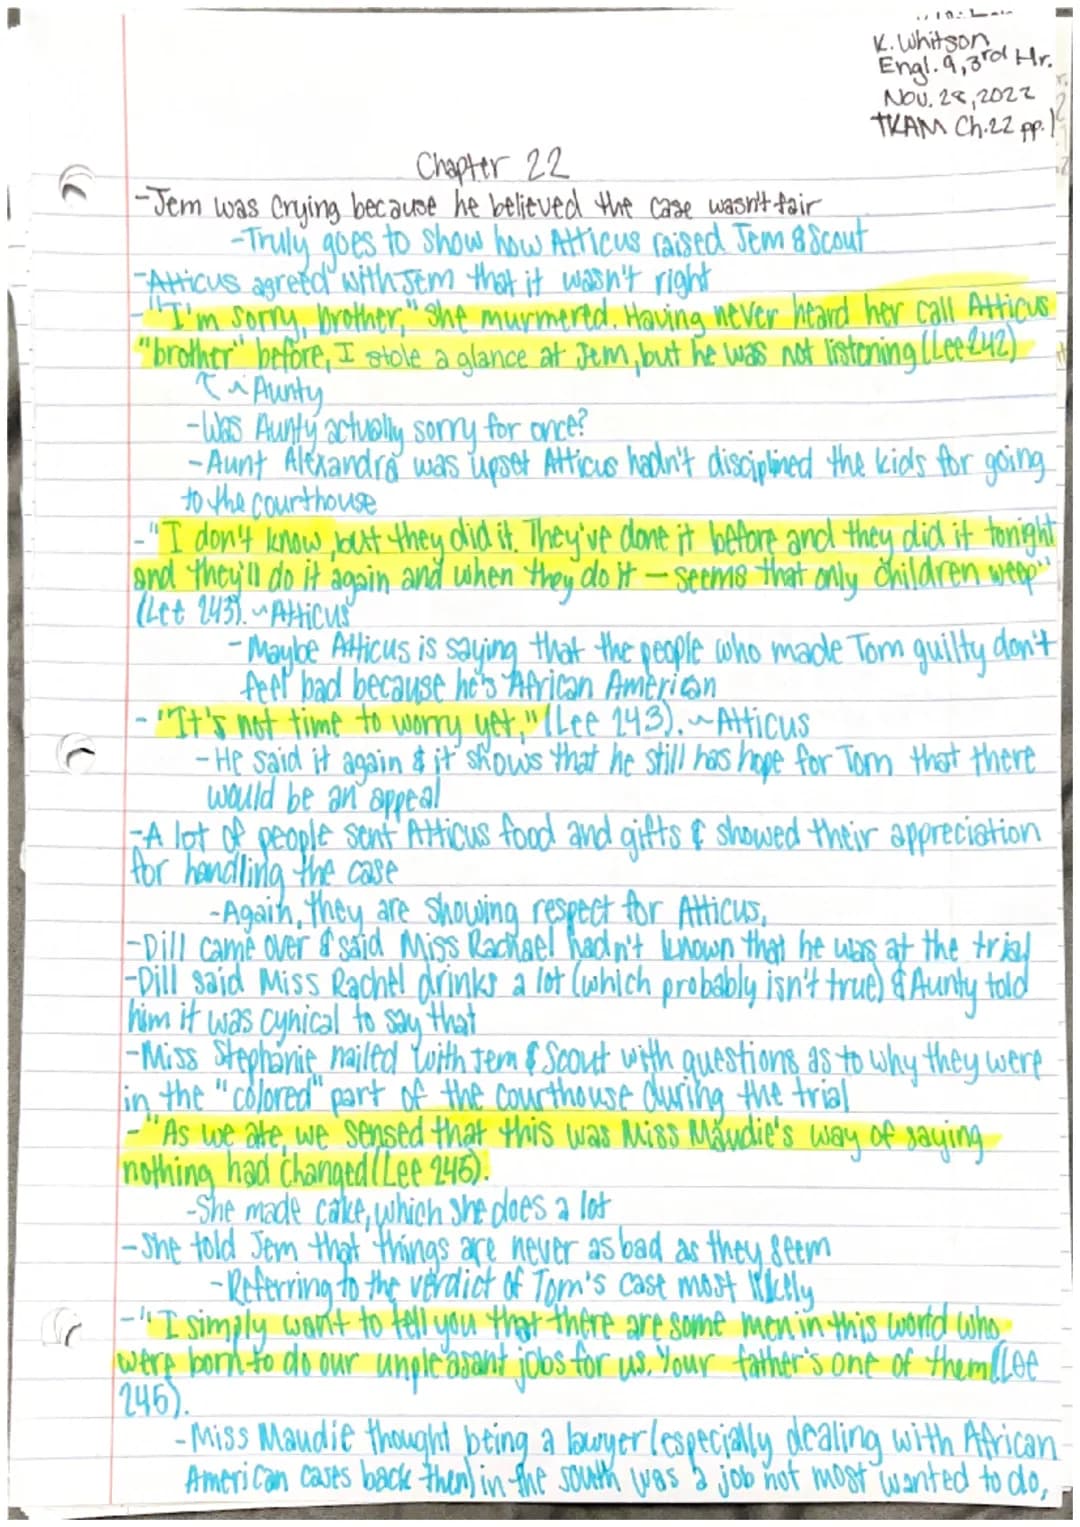 K. Whitson
Engl. 9, 3rd Hr.
Nov. 28, 2022
TKAM Ch.22 pp.1
Chapter 22
-Jem was crying because he believed the case wasn't fair
-Truly goes to show how Atticus raised Jem & Scout
-Atticus agreed with Jem that it wasn't right
-"I'm sorry, brother," she murmered. Having never heard her call Atticus
"brother" before, I stole a glance at Jem, but he was not listening (Lee 242)
↑ ~ Aunty
-Was Aunty actually sorry for once?
-Aunt Alexandra was upset Atticus hadn't disciplined the kids for going
to the courthouse
-"I don't know, but they did it. They've done it before and they did it tonight
and they'll do it again and when they do it — seems that only children weep"
(Lee 243). ~Atticus
-Maybe Atticus is saying that the people who made Tom guilty don't
feel bad because he's African American
-"It's not time to worry yet," (Lee 243). ~Atticus
-He said it again & it shows that he still has hope for Tom that there
would be an appeal
-A lot of people sent Atticus food and gifts & showed their appreciation
for handling the case
-Again, they are showing respect for Atticus,
-Dill came over & said Miss Rachael hadn't known that he was at the trial
-Dill said Miss Rachel drinks a lot (which probably isn't true) & Aunty told
him it was cynical to say that
-Miss Stephanie nailed with Jem & Scout with questions as to why they were
in the "colored" part of the courthouse during the trial
-"As we ate, we sensed that this was Miss Maudie's way of saying
nothing had changed (Lee 245).
-She made cake, which she does a lot
-She told Jem that things are never as bad as they seem
-Referring to the verdict of Tom's case most likely
-"I simply want to tell you that there are some men in this world who
were born to do our unpleasant jobs for us. Your father's one of them (Lee
245).
-Miss Maudie thought being a lawyer (especially dealing with African
American cases back then) in the south was a job not most wanted to do,